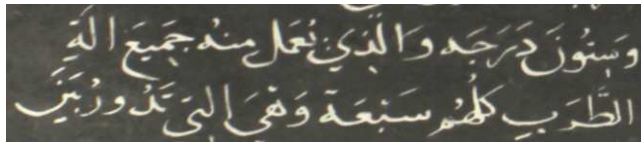 وَسِتُّونَ دَرَجَه وَالَّذِي نُعْمَل مِنهُ جَمِيعَ الَةِ
الطَّرَبِ كُلُّهُم سَبْعَة وَهِيَ التِي تَدُورُ بَيْنَ